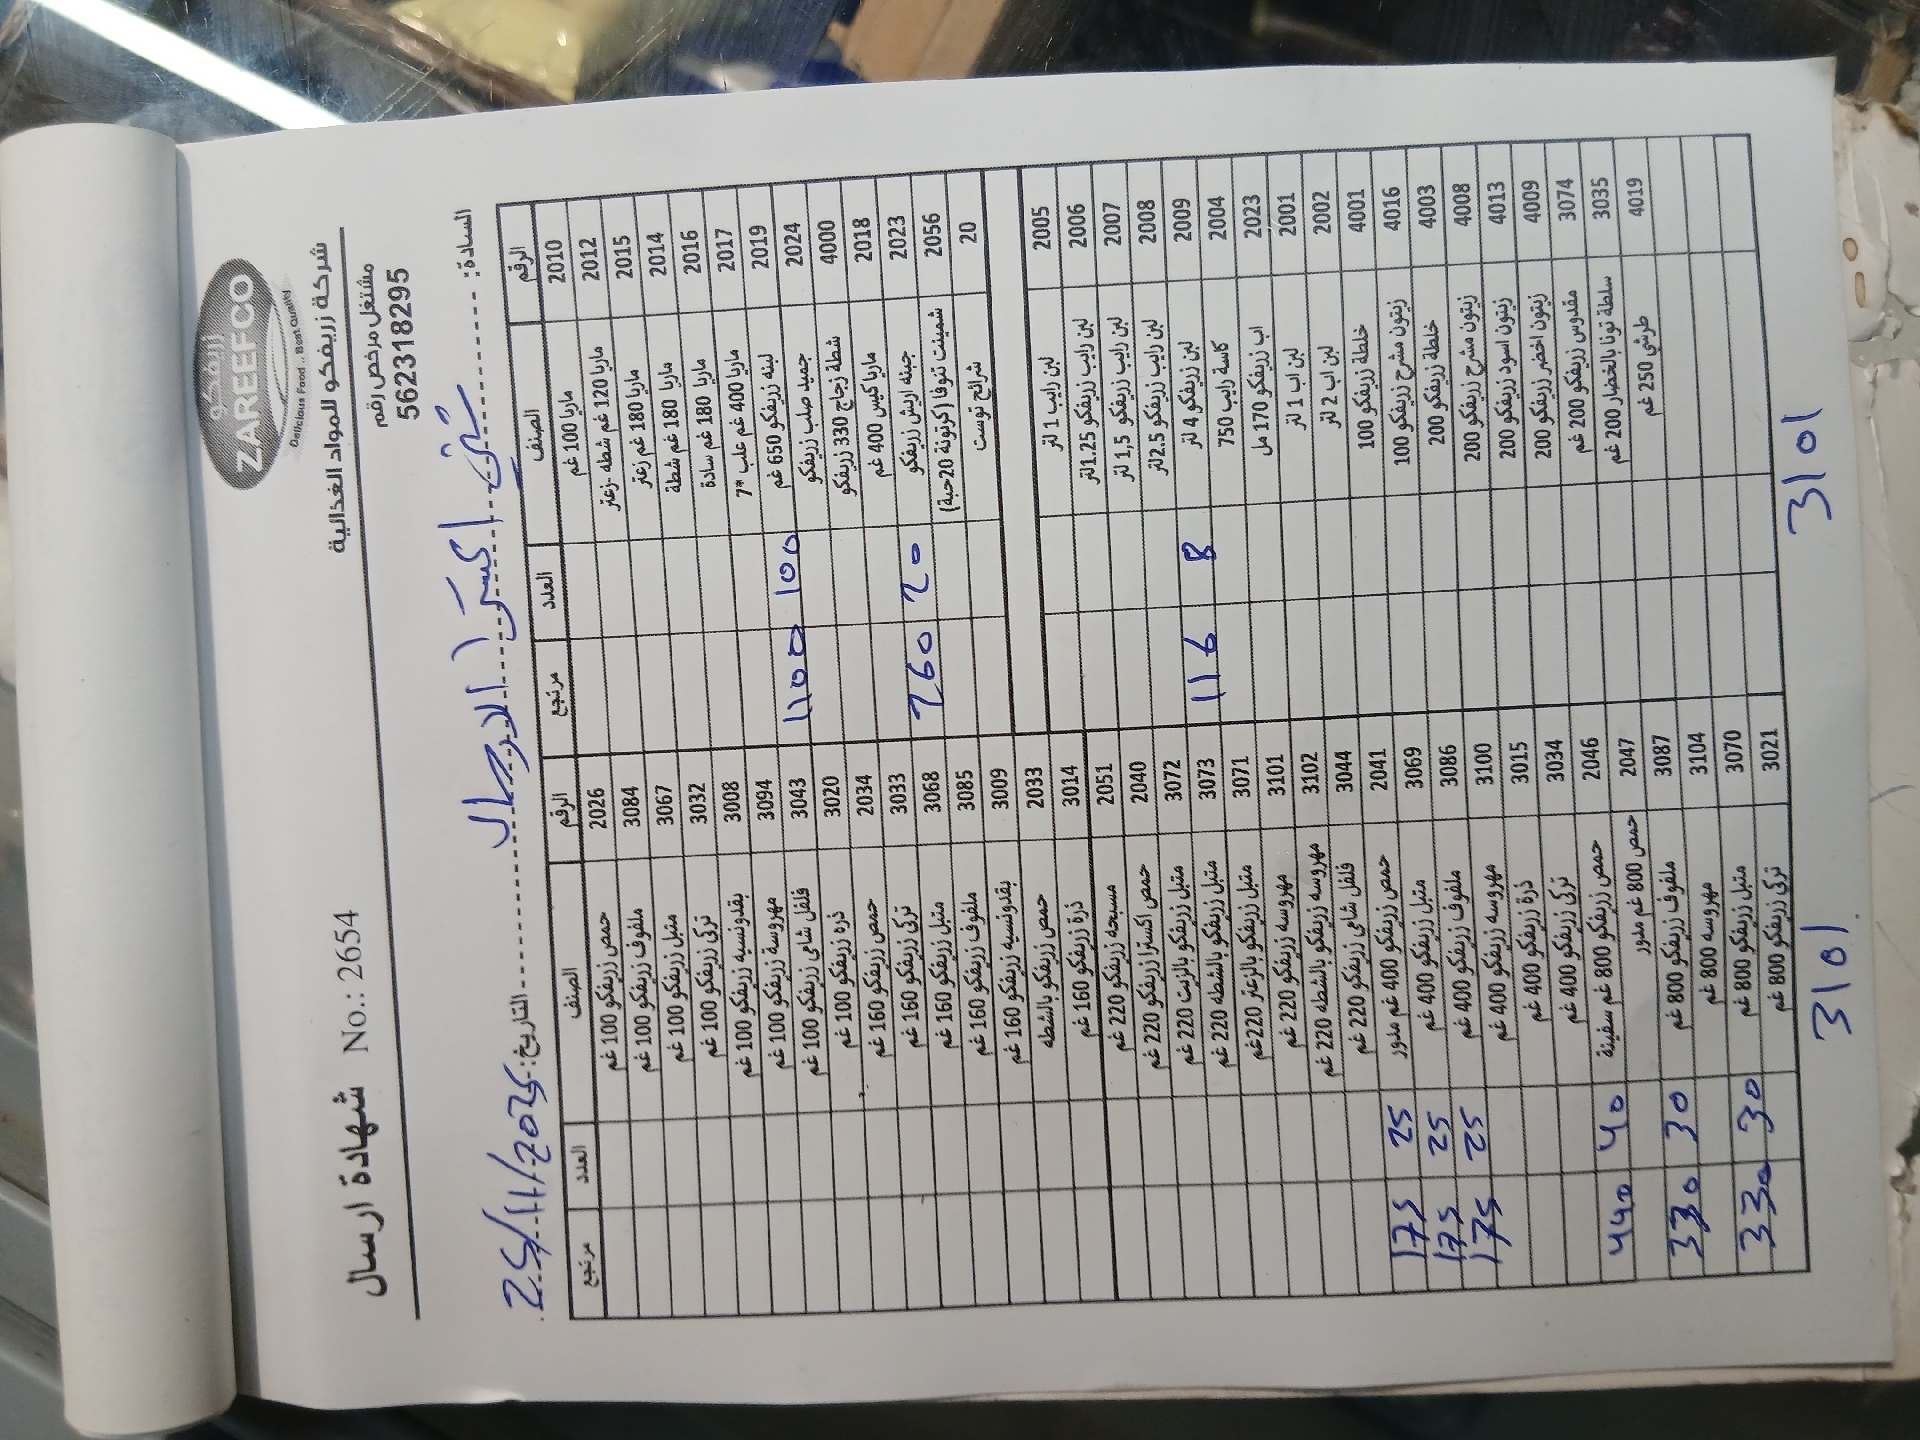 ZAREEFCO
زريفكو
Delicious Food .. Best Quality
شركة زريفكو للمواد الغذائية
مشتغل مرخص رقم
562318295
شهادة ارسال No.: 2654
السادة: اكسترا التاريخ: 25/11/2025
الرقم الصنف العدد مرتجع الرقم الصنف العدد مرتجع
2010 ماريا 100 غم 2026 حمص زريفكو 100 غم
2012 ماريا 120 غم شطه -زعتر 3084 ملفوف زريفكو 100 غم
2015 ماريا 180 غم زعتر 3067 متبل زريفكو 100 غم
2014 ماريا 180 غم شطة 3032 تركي زريفكو 100 غم
2016 ماريا 180 غم سادة 3008 بقدونسيه زريفكو 100 غم
2017 ماريا 400 غم علب *7 3094 مهروسة زريفكو 100 غم
2019 لبنه زريفكو 650 غم 100 1100 3043 فلفل شامي زريفكو 100 غم
2024 جميد صلب زريفكو 3020 ذره زريفكو 100 غم
4000 شطة زجاج 330 زريفكو 2034 حمص زريفكو 160 غم
2018 ماريا كيس 400 غم 3033 تركي زريفكو 160 غم
2023 جبنه اريش زريفكو 20 260 3068 متبل زريفكو 160 غم
2056 شمينت تنوفا (كرتونة 20حبة) 3085 ملفوف زريفكو 160 غم
20 شرائح توست 3009 بقدونسيه زريفكو 160 غم
2033 حمص زريفكو بالشطه
2005 لبن رايب 1 لتر 3014 ذرة زريفكو 160 غم
2006 لبن رايب زريفكو 1.25لتر 2051 مسبحه زريفكو 220 غم
2007 لبن رايب زريفكو 1,5 لتر 2040 حمص اكسترا زريفكو 220 غم
2008 لبن رايب زريفكو 2.5لتر 3072 متبل زريفكو بالزيت 220 غم
2009 لبن زريفكو 4 لتر 8 116 3073 متبل زريفكو بالشطه 220 غم
2004 كاسة رايب 750 3071 متبل زريفكو بالزعتر 220غم
2023 اب زريفكو 170 مل 3101 مهروسه زريفكو 220 غم
2001 لبن اب 1 لتر 3102 مهروسه زريفكو بالشطه 220 غم
2002 لبن اب 2 لتر 3044 فلفل شامي زريفكو 220 غم
4001 خلطة زريفكو 100 2041 حمص زريفكو 400 غم مدور 25 175
4016 زيتون مشرح زريفكو 100 3069 متبل زريفكو 400 غم 25 175
4003 خلطة زريفكو 200 3086 ملفوف زريفكو 400 غم 25 175
4008 زيتون مشرح زريفكو 200 3100 مهروسه زريفكو 400 غم
4013 زيتون اسود زريفكو 200 3015 ذرة زريفكو 400 غم
4009 زيتون اخضر زريفكو 200 3034 تركي زريفكو 400 غم
3074 مقدوس زريفكو 200 غم 2046 حمص زريفكو 800 غم سفينة 40 440
3035 سلطة تونا بالخضار 200 غم 2047 حمص 800 غم مدور
4019 طرشي 250 غم 3087 ملفوف زريفكو 800 غم 30 330
3104 مهروسه 800 غم
3070 متبل زريفكو 800 غم 30 330
3021 تركي زريفكو 800 غم
3101 3101